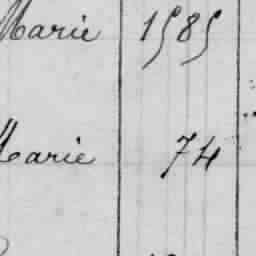 Marie 1585
Marie 74